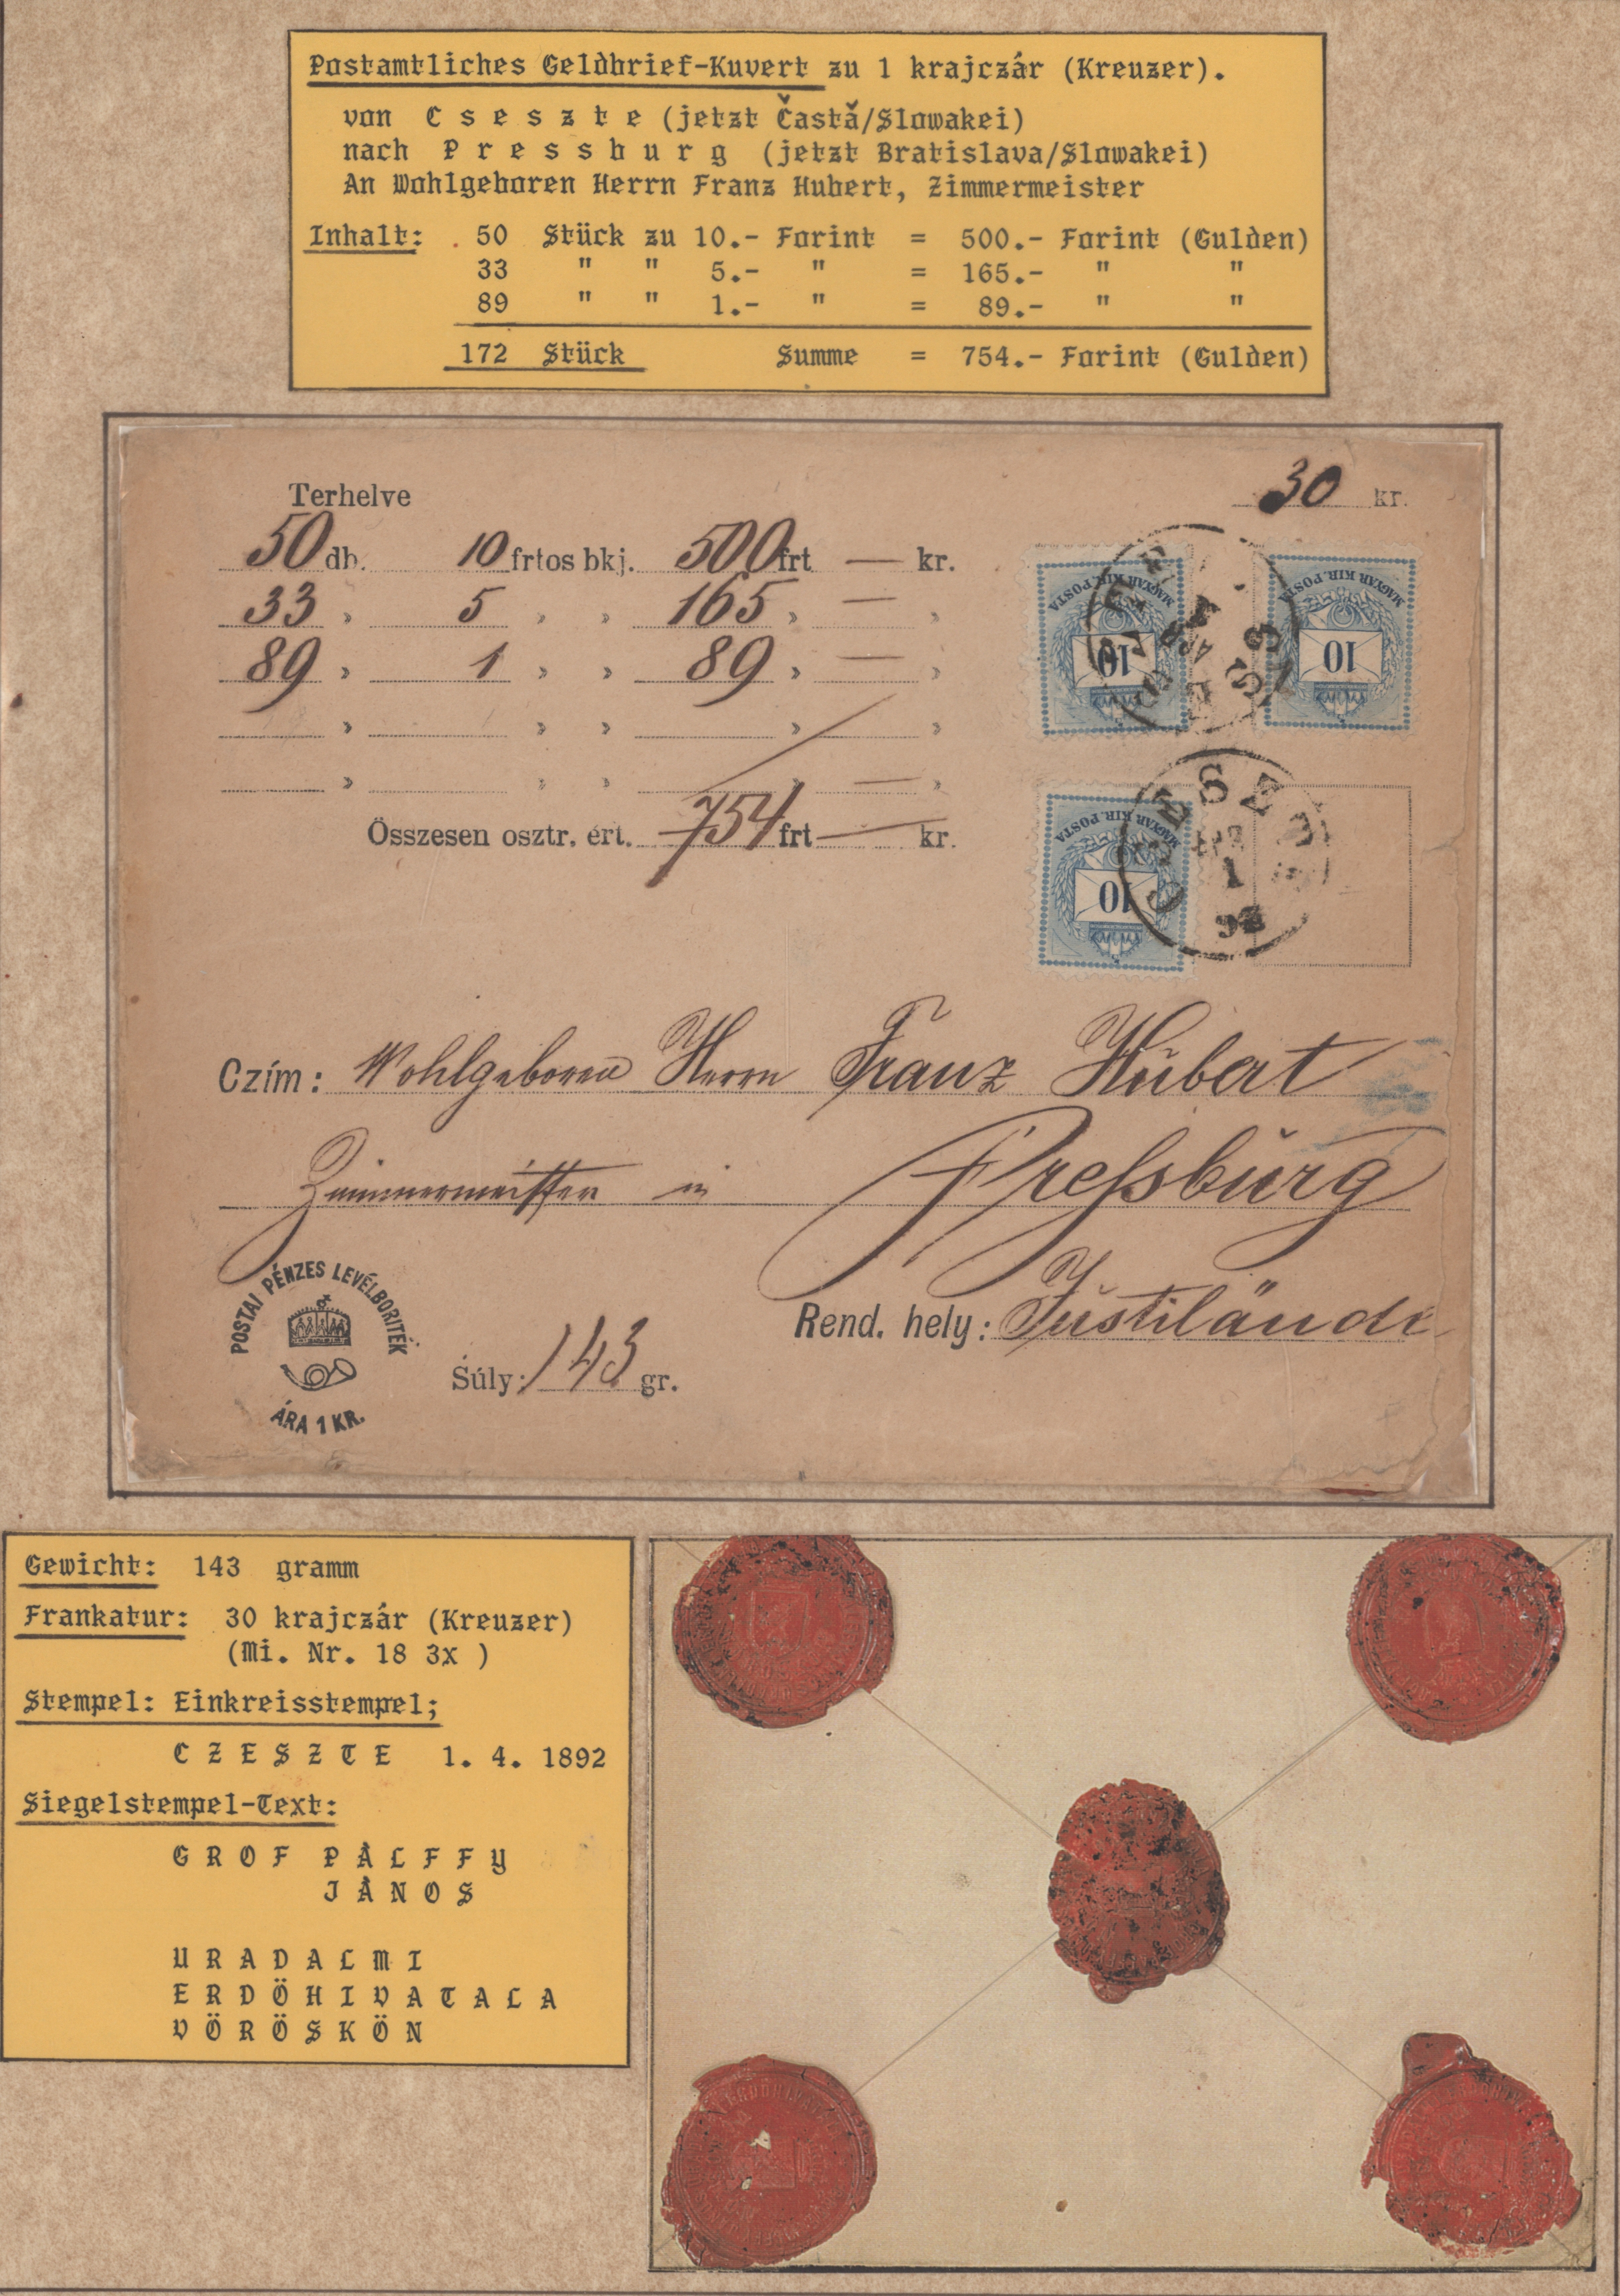 Postamtliches Geldbrief-Kuvert zu 1 krajczár (Kreuzer).
von C s e s z t e (jetzt Častă/Slowakei)
nach P r e s s b u r g (jetzt Bratislava/Slowakei)
An Wohlgeboren Herrn Franz Hubert, Zimmermeister
Inhalt: 50 Stück zu 10.- Forint = 500.- Forint (Gulden)
33 " " 5.- " = 165.- " "
89 " " 1.- " = 89.- " "
172 Stück Summe = 754.- Forint (Gulden)
Terhelve 30 kr.
50 db. 10 frtos bkj. 500 frt — kr.
33 " 5 " " 165 " — "
89 " 1 " " 89 " — "
" " " " "
" " " " — "
Összesen osztr. ért. 754 frt — kr.
MAGYAR KIR. POSTA
10
MAGYAR KIR. POSTA
10
MAGYAR KIR. POSTA
10
1
92
Czím: Wohlgeboren Herrn Franz Hubert
Zimmermeister in Pressburg
POSTAI PÉNZES LEVÉLBORITÉK
ÁRA 1 KR.
Súly: 143 gr.
Rend. hely:
Gewicht: 143 gramm
Frankatur: 30 krajczár (Kreuzer)
(Mi. Nr. 18 3x )
Stempel: Einkreisstempel;
C Z E S Z T E 1. 4. 1892
Siegelstempel-Text:
G R O F P À L F F Y
J À N O S
U R A D A L M I
E R D Ö H I V A T A L A
V Ö R Ö S K Ö N